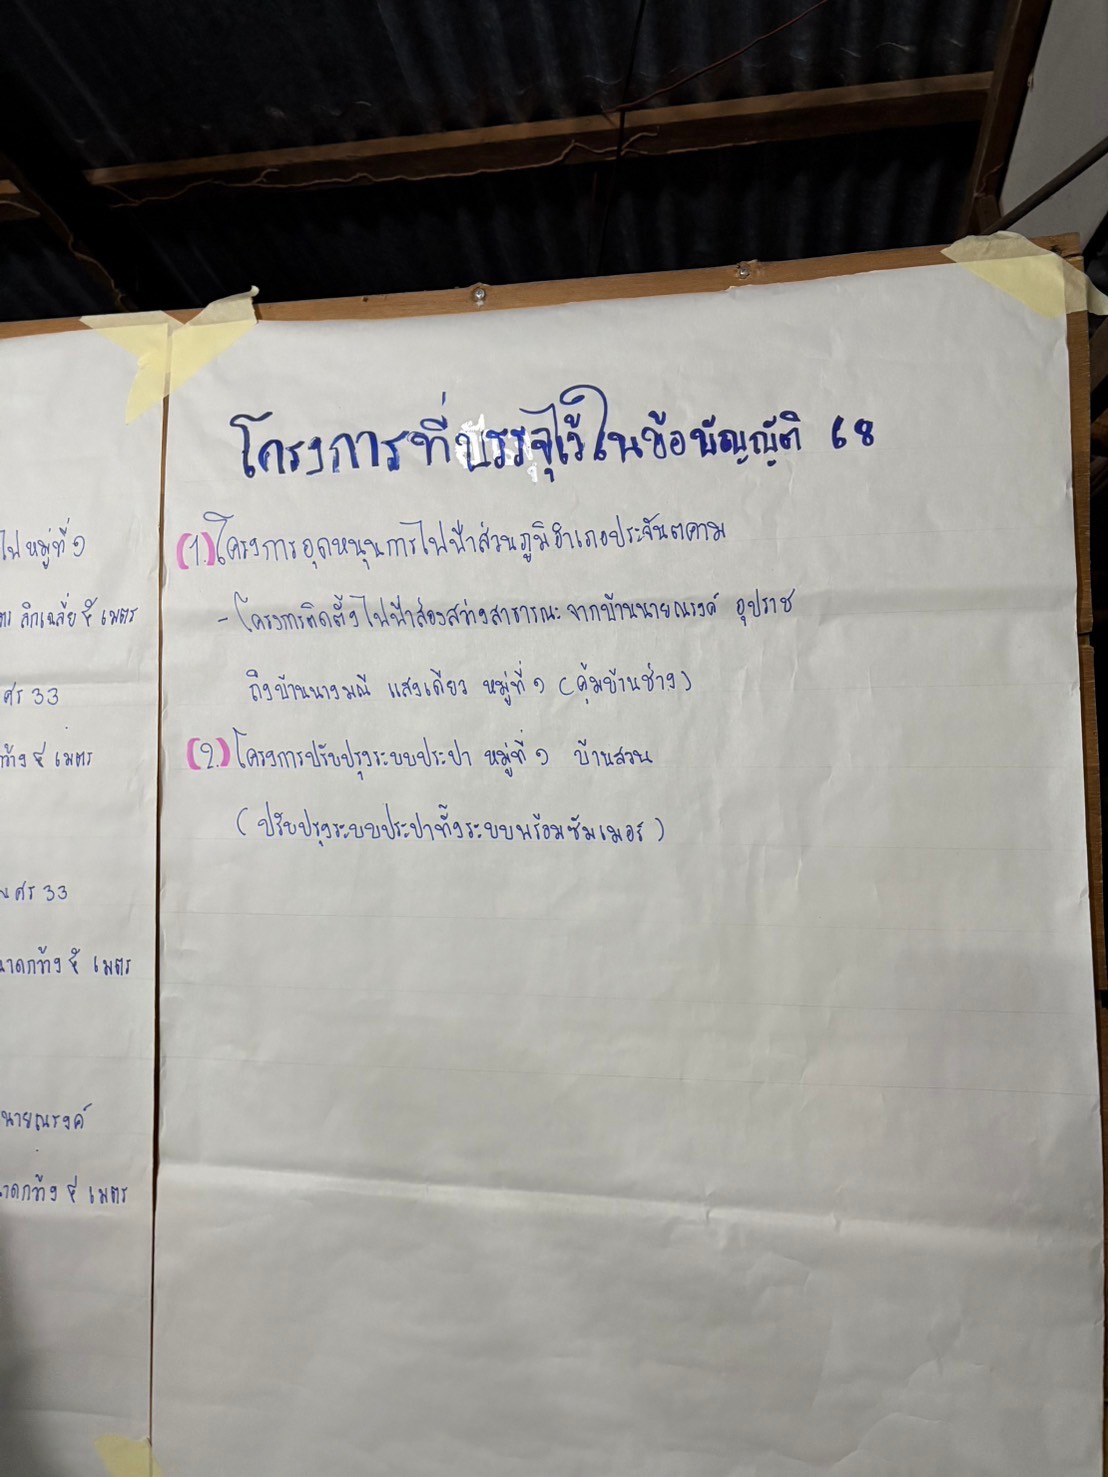 โครงการที่บรรจุไว้ในข้อบัญญัติ 68
(1.) โครงการอุดหนุนการไฟฟ้าส่วนภูมิอำเภอประจันตคาม
- โครงการติดตั้งไฟฟ้าส่องสว่างสาธารณะจากบ้านนายณรงค์ อุปราช
ถึงบ้านนางมณี แสงเดียว หมู่ที่ ๑ (คุ้มบ้านช่าง)
(2.) โครงการปรับปรุงระบบประปา หมู่ที่ ๑ บ้านสวน
(ปรับปรุงระบบประปาทั้งระบบพร้อมซัมเมอร์)
ไฟ หมู่ที่ ๑
ลึกเฉลี่ย ๕ เมตร
ศร 33
กว้าง ๔ เมตร
ศร 33
กว้าง ๕ เมตร
นายณรงค์
กว้าง ๔ เมตร